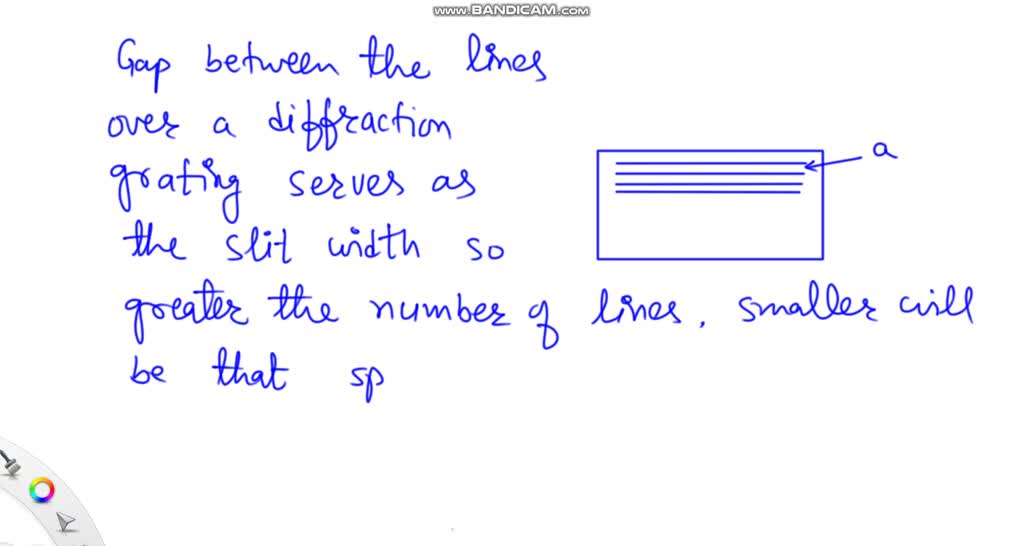 www.BANDICAM.com
Gap between the lines
over a diffraction
grating serves as
the slit width so
greater the number of lines, smaller will
be that sp
a